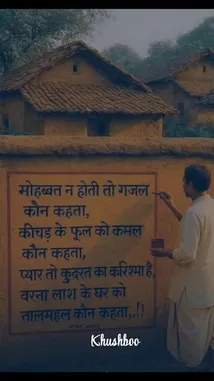 मोहब्बत न होती तो गजल
कौन कहता,
कीचड़ के फूल को कमल
कौन कहता,
प्यार तो कुदरत का करिश्मा है,
वरना लाश के घर को
तालमहल कौन कहता,..!!
Khushboo